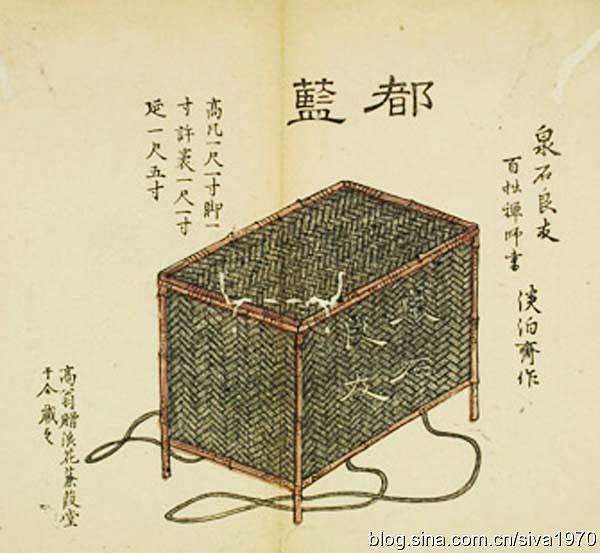 都藍
泉石良友
百拙禪師書
淡泊齊作
高凡一尺一寸脚一
寸許裏一尺一寸
延一尺五寸
泉石
良友
高翁贈浪花蒹葭堂
于今藏之
blog.sina.com.cn/siva1970